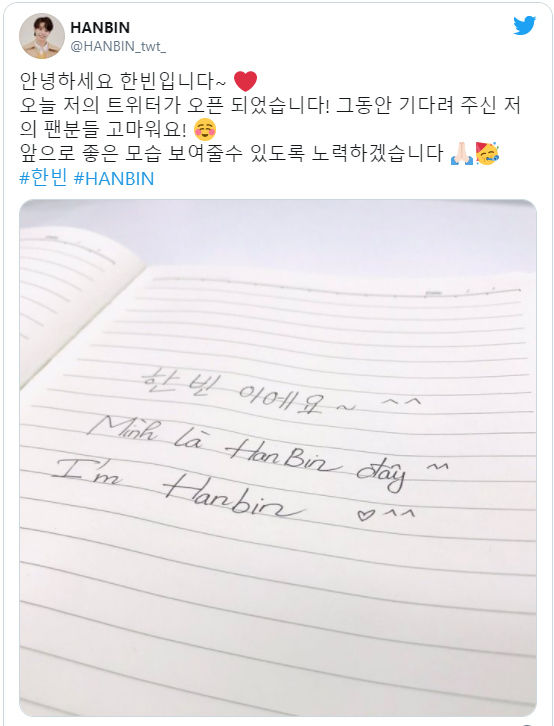 HANBIN
@HANBIN_twt_
안녕하세요 한빈입니다~ ❤️
오늘 저의 트위터가 오픈 되었습니다! 그동안 기다려 주신 저
의 팬분들 고마워요! ☺️
앞으로 좋은 모습 보여줄수 있도록 노력하겠습니다 🙏🏻🥳
#한빈 #HANBIN
한빈 이에요~ ^^
Mình là HanBin đây ^^
I'm Hanbin ♡^^